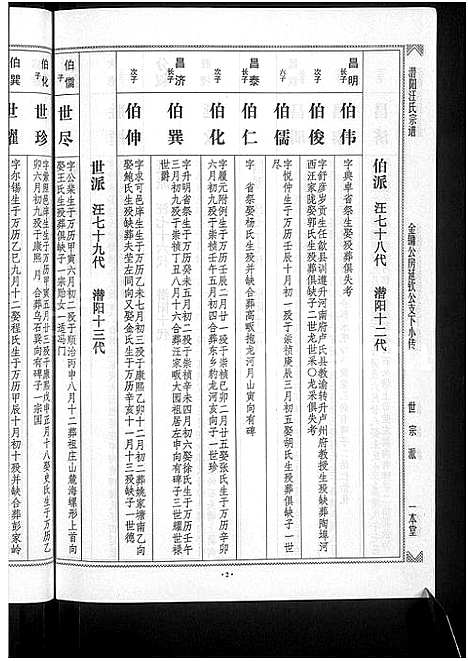 潜阳汪氏宗谱
世宗派
一本堂
伯派 汪七十八代 潜阳十二代
昌明
长子
伯伟
字典卓省祭生娶殁葬俱失考
次子
伯俊
字舒彦岁贡生任歙县训道升河南府卢氏县教谕转升卢州府教授生殁缺葬陶埠河
西汪家陇娶郭氏生殁葬俱缺子二世龙世采○龙采俱失考
六子
伯儒
字悦仲生于万历壬辰十月初一殁于崇祯庚辰三月初五娶胡氏生殁葬俱缺子一世
尽
昌泰
长子
伯仁
字 省祭娶杨氏生殁并缺合葬高畈抱龙河月山寅向有碑
次子
伯化
字履元附例生于万历壬辰二月廿一殁于崇祯己卯二月廿五娶张氏生于万历辛卯
六月初九殁于崇祯壬午五月初四合葬东乡豹龙河亥向子一世珍
昌济
长子
伯巽
字升明省祭生于万历癸未五月初二殁于崇祯辛未四月初六娶徐氏生于万历壬午
三月初六殁于崇祯丁丑八月十六合葬汪家畈大园祖居左申向有碑子三世耀世禄
世爵
次子
伯伸
字求可邑庠生生于万历乙未七月初三殁于康熙乙卯十二月初二葬姚家塝南乙向
娶鲍氏生殁缺葬夫茔左同向又娶金氏生于万历辛亥十一月十三殁缺子一世德
世派 汪七十九代 潜阳十三代
伯儒
子
世尽
字公燊生于万历甲寅六月初三殁于顺治丙申八月十二葬祖庄山麓海螺形上首向
娶王氏生殁葬俱缺子一宗贻女一适冯门
伯化
子
世珍
卯六月初九殁于康熙 月 合葬乌石巽向有碑子一宗国
伯巽
世耀
字尔锡生于万历乙巳九月十二娶程氏生于万历甲辰十月初十殁并缺合葬彭家岭
·2·